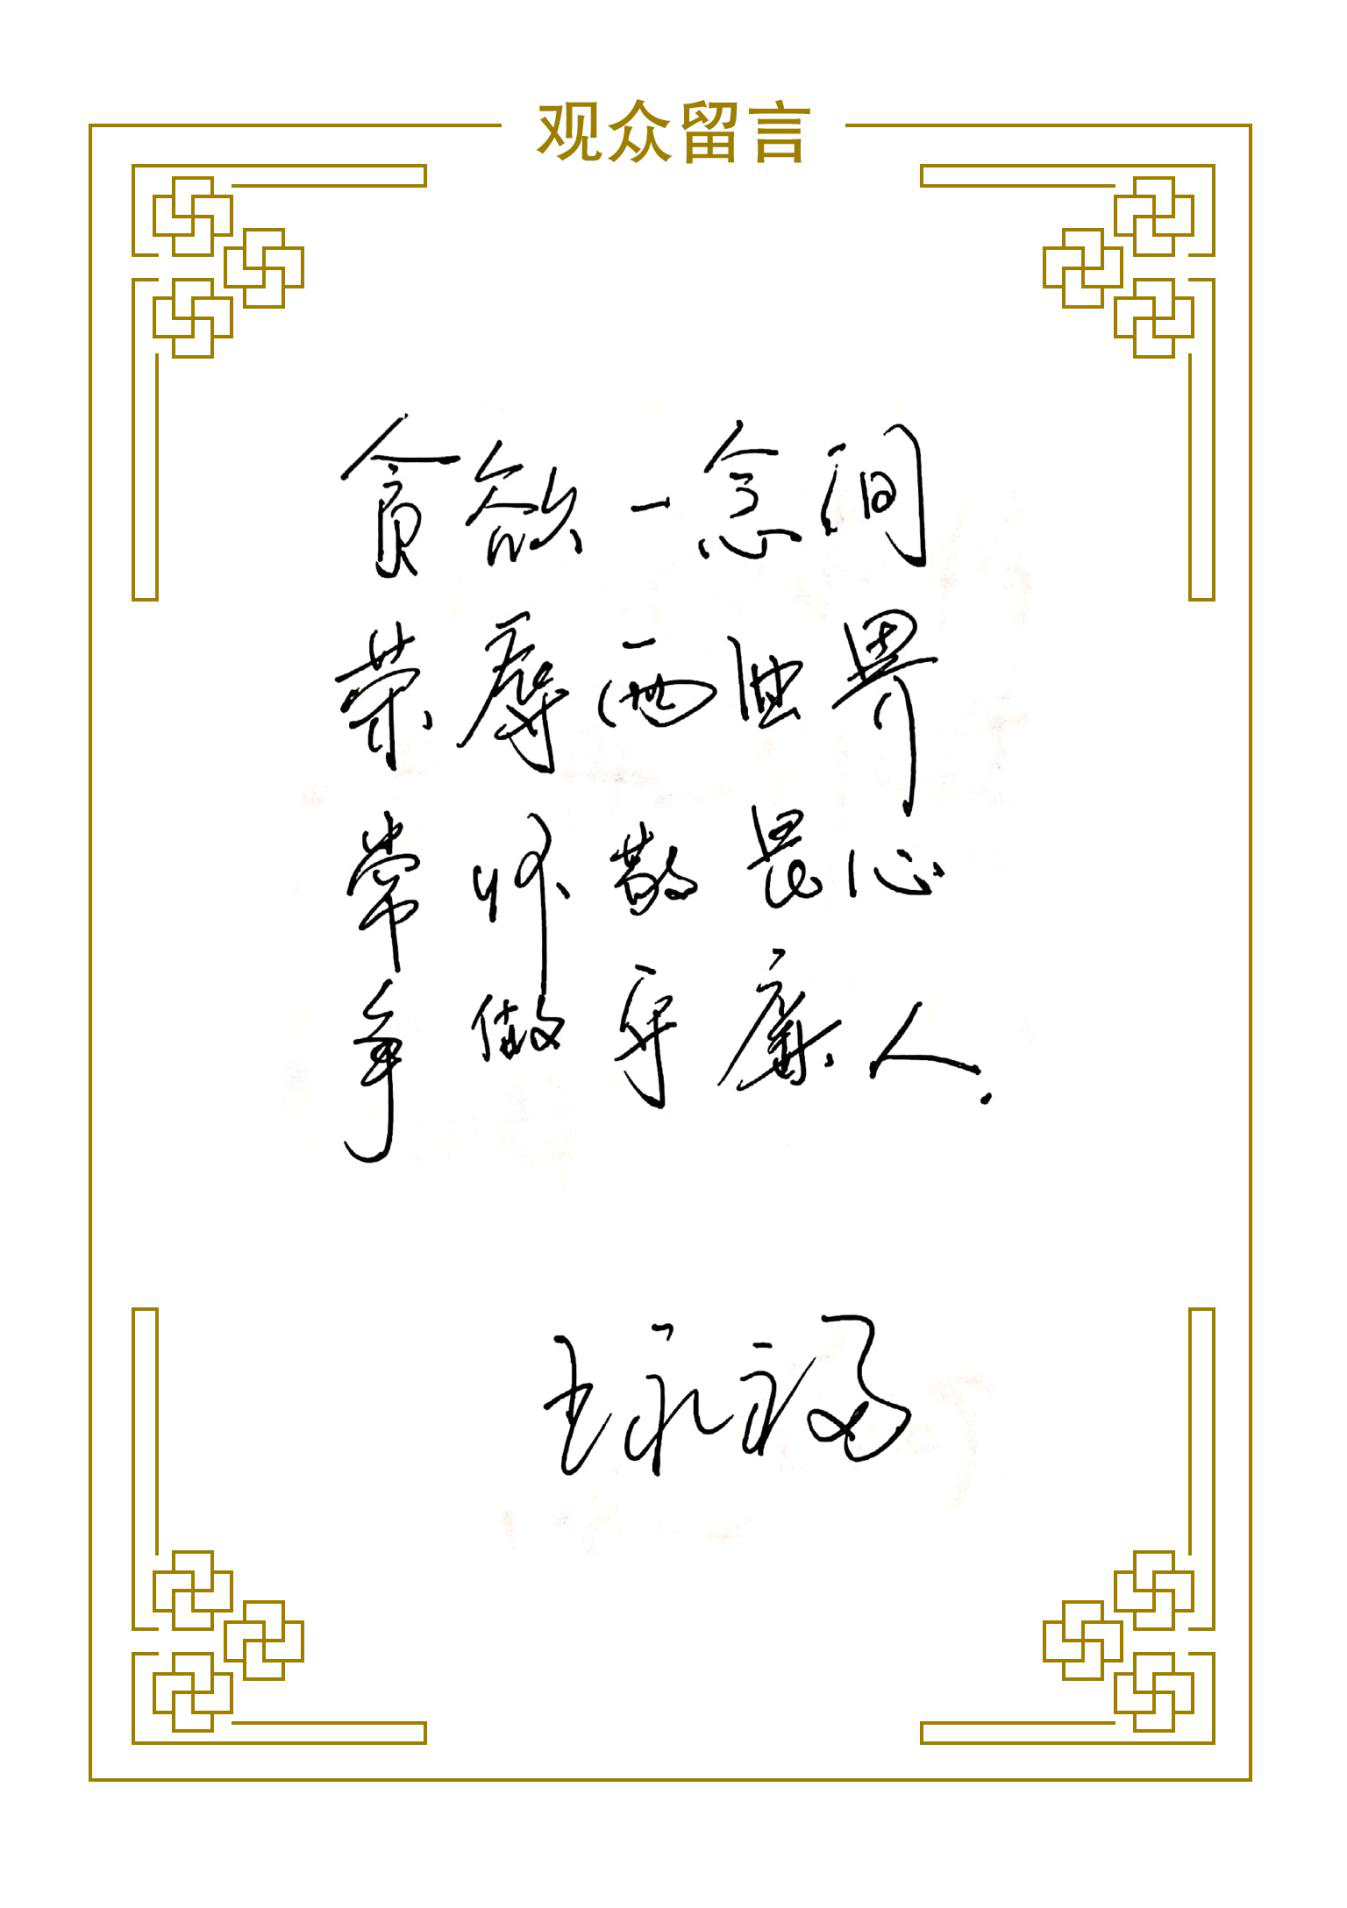 观众留言
贪欲一念间
荣辱两世界
常怀敬畏心
争做守廉人.
王永福